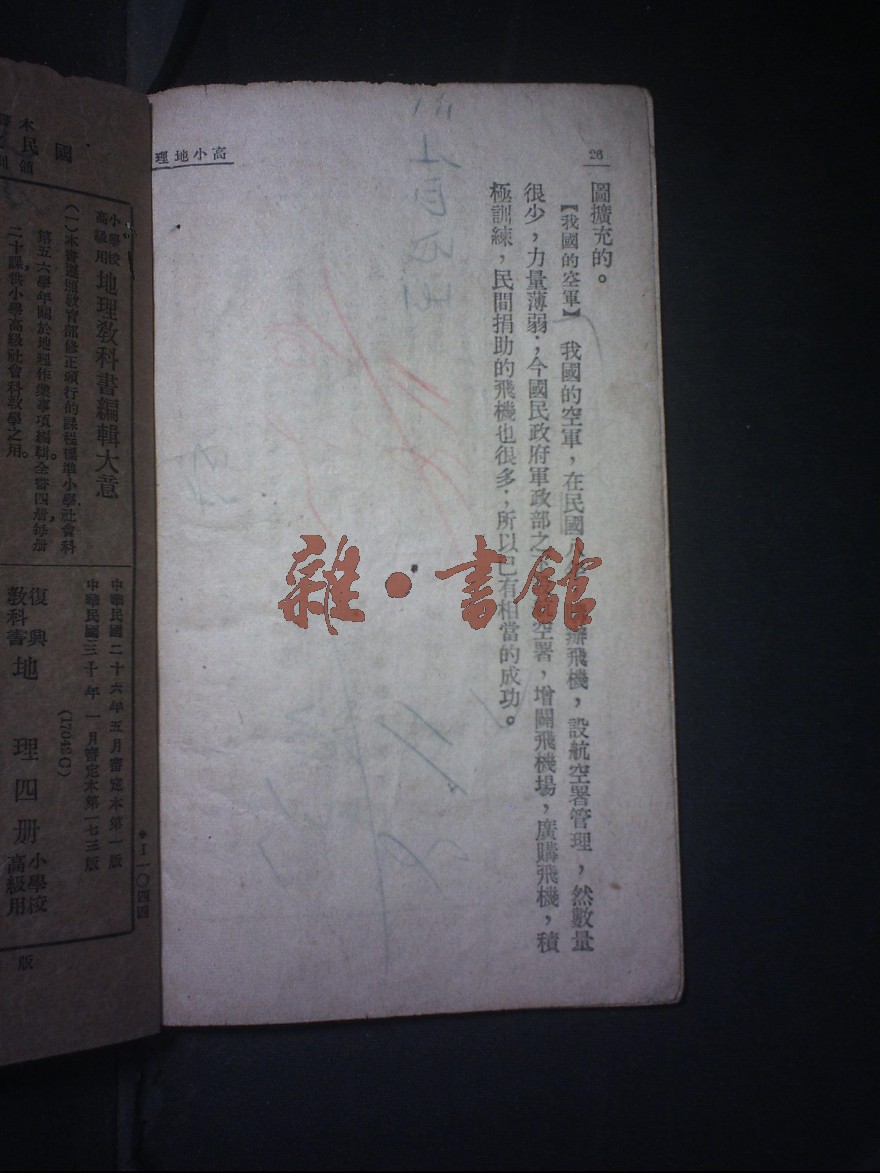 26
高小地理
圖擴充的。
【我國的空軍】 我國的空軍，在民國八 辦飛機，設航空署管理，然數量
很少，力量薄弱；今國民政府軍政部之 空署，增闢飛機場，廣購飛機，積
極訓練，民間捐助的飛機也很多；所以已有相當的成功。
雜·書館
國民
小學校高級用 地理教科書編輯大意
(一)本書遵照教育部修正頒行的課程標準小學社會科
第五六學年關於地理作業事項編輯全書四册每册
二十課供小學高級社會科教學之用。
中華民國二十六年五月審定本第一版
中華民國三十年一月審定本第一七三版
(17042C)
復興教科書 地理四册 小學校高級用
*I一〇四四
版